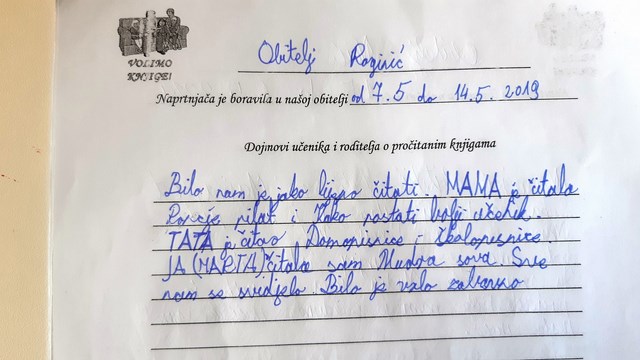 VOLIMO
KNJIGE!
Obitelj Rozinić
Naprtnjača je boravila u našoj obitelji od 7.5 do 14.5. 2019
Dojmovi učenika i roditelja o pročitanim knjigama
Bilo nam je jako lijepo čitati. MAMA je čitala
Poncije pilat i Kako postati bolji učenik.
TATA je čitao Domopisnice i školopisnice.
JA (MARTA) čitala sam Mudra sova. Sve
nam se svidjelo. Bilo je vrlo zabavno